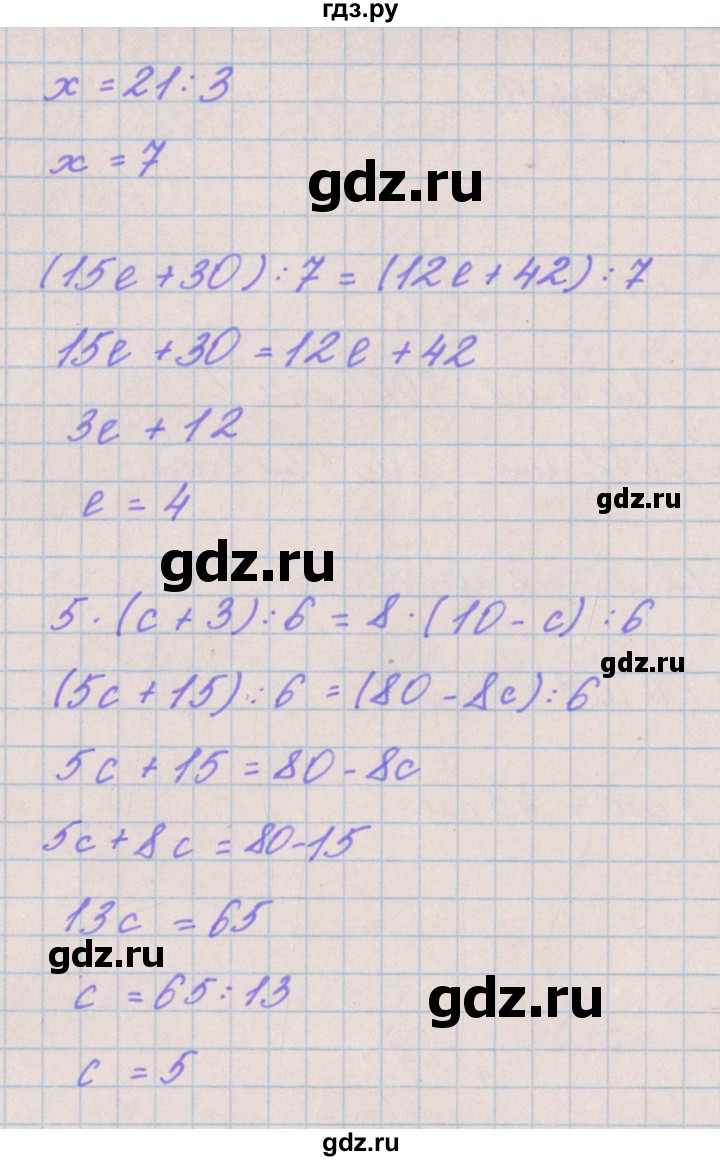 гдз.ру
x = 21 : 3
x = 7
gdz.ru
(15e + 30) : 7 = (12e + 42) : 7
15e + 30 = 12e + 42
3e + 12
e = 4
gdz.ru
gdz.ru
5 · (c + 3) : 6 = 8 · (10 - c) : 6
gdz.ru
(5c + 15) : 6 = (80 - 8c) : 6
5c + 15 = 80 - 8c
5c + 8c = 80 - 15
13c = 65
gdz.ru
c = 65 : 13
gdz.ru
c = 5
gdz.ru